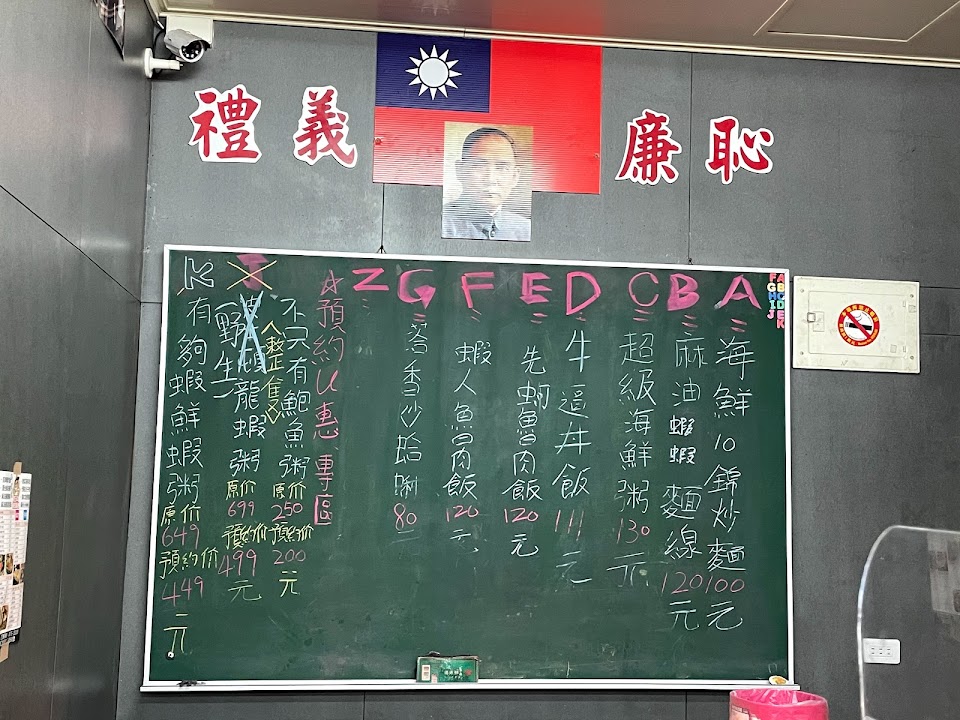 禮義廉恥
A 海鮮10錦炒麵100元
B 麻油蝦蝦麵線120元
C 超級海鮮粥130元
D 牛逼丼飯111元
E 先蚵魯肉飯120元
F 蝦人魯肉飯120元
G 香炒蛤蜊80元
Z
☆預約U惠專區
不只有鮑魚粥原价250預約价200元
(野生)龍蝦粥原价699預約价499元
K 有夠蝦鮮蝦粥原价649預約价449元
FGHIJ
ABCDEK